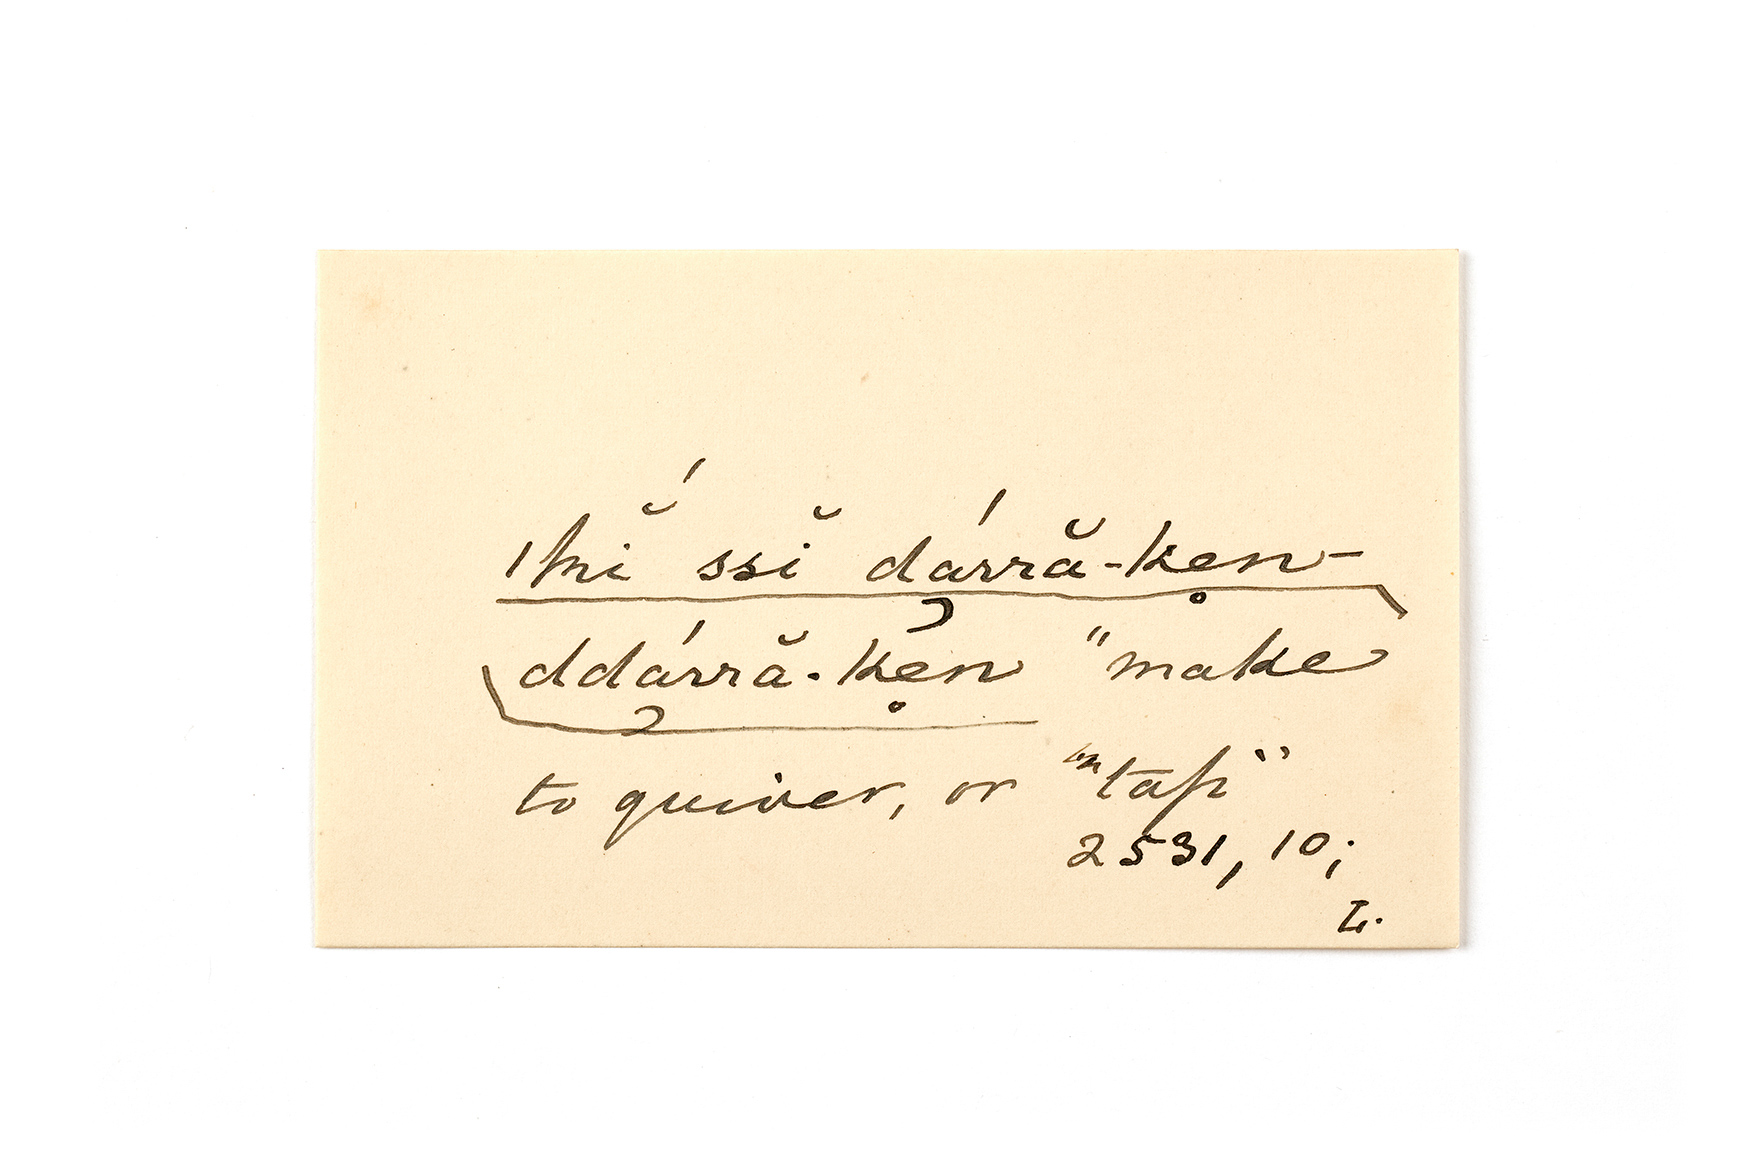 ǀhĭ́ ssĭ dárrā̆-ken-
ddárrā̆-ken "make
to quiver, or "tap"
2531, 10;
L.